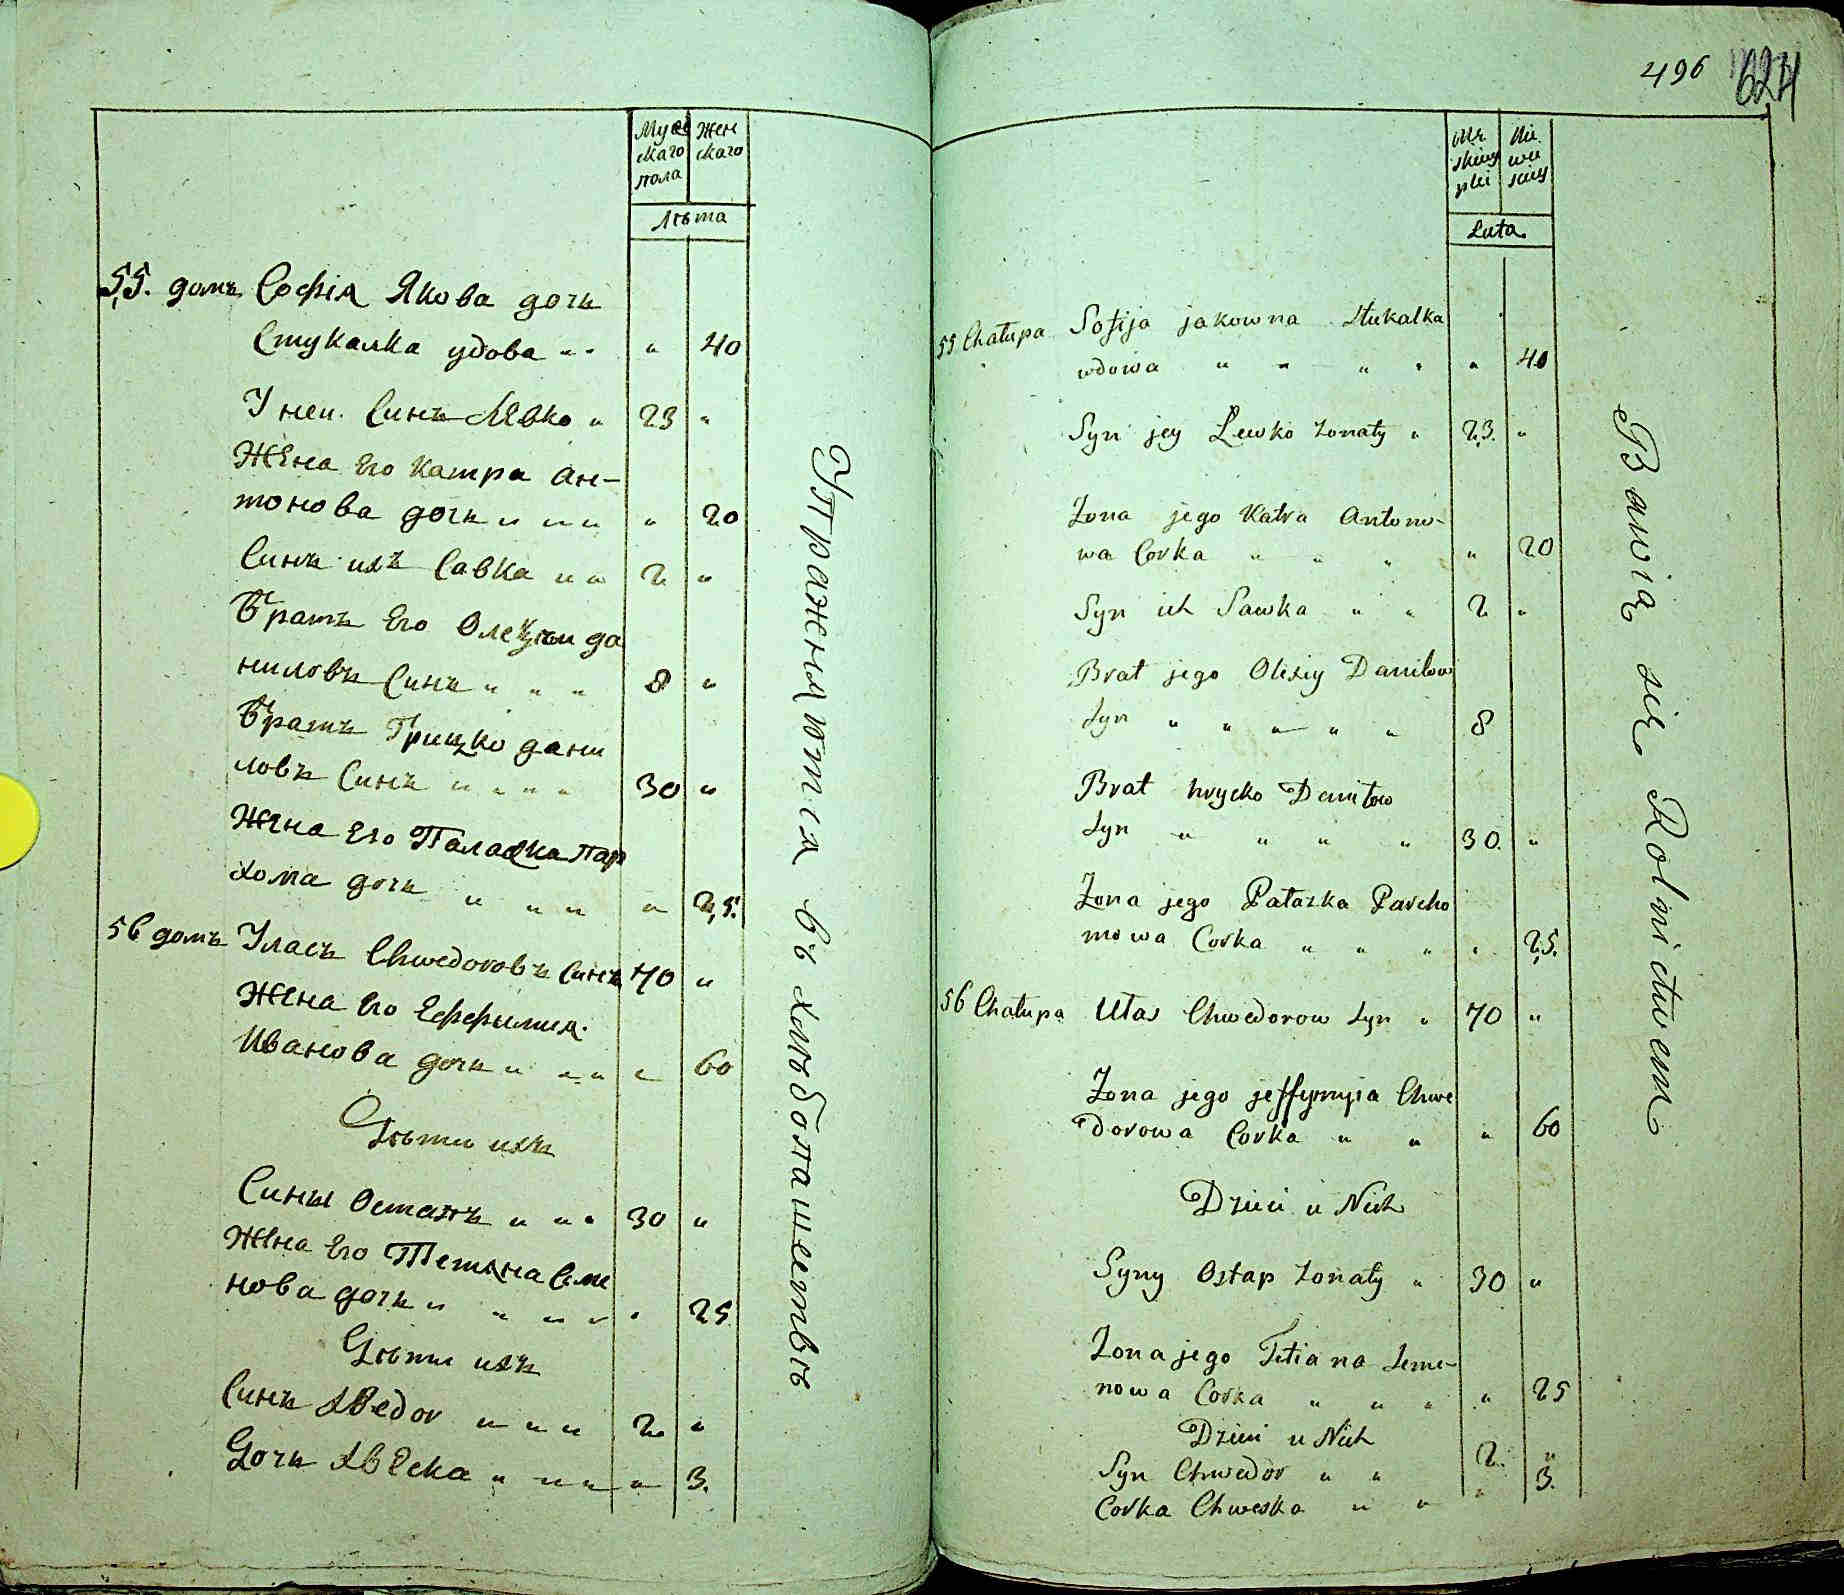 Мужскаго пола Женскаго
Лѣта
55. домъ Софія Якова дочь
Стукалка удова " " " 40
У неи. Синъ Левко " 23 "
Жена Его Катра Ан-
тонова дочь " " " " 20
Синъ ихъ Савка " " 2 "
Братъ Его Олексѣи да
ниловъ Синъ " " " 8 "
Братъ Грицко дани
ловъ Синъ " " " " 30 "
Жена Его Палажка Пар
хома дочь " " " " 25.
56 домъ Уласъ Chwedoровъ Синъ 70 "
Жена Его Еффимия.
Иванова дочь " " " " 60
Дѣти ихъ
Сины Остапъ " " " 30 "
Жена Его Тетяна Семе
нова дочь " " " " " 25
Дѣти ихъ
Синъ Хвеdor " " " 2 "
Дочь Хвеска " " " " 3.
Упражняются въ хлѣбопашествѣ
496 624
Mę skiey płci Nie wie sciey
Lata.
55 Chałupa Sofija jakowna Stukalka
wdowa " " " " " 40
Syn jey Lewko żonaty " 23. "
Żona jego Katra Antono-
wa Corka " " " " 20
Syn ich Sawka " " 2 "
Brat jego Olexiy Daniłow
Syn " " " " " 8
Brat hrycko Daniłow
Syn " " " " 30. "
Żona jego Pałażka Parcho
mowa Corka " " " " 25.
56 Chałupa Ułas Chwedorow Syn " 70 "
Żona jego jeffymyia Chwe
dorowa Corka " " " 60
Dzieci u Nich
Syny Ostap żonaty " 30 "
Żona jego Tetiana Seme-
nowa Corka " " " " 25
Dzieci u Nich
Syn Chwedor " " 2. "
Corka Chweska " " " 3.
Bawią się Rolnictwem